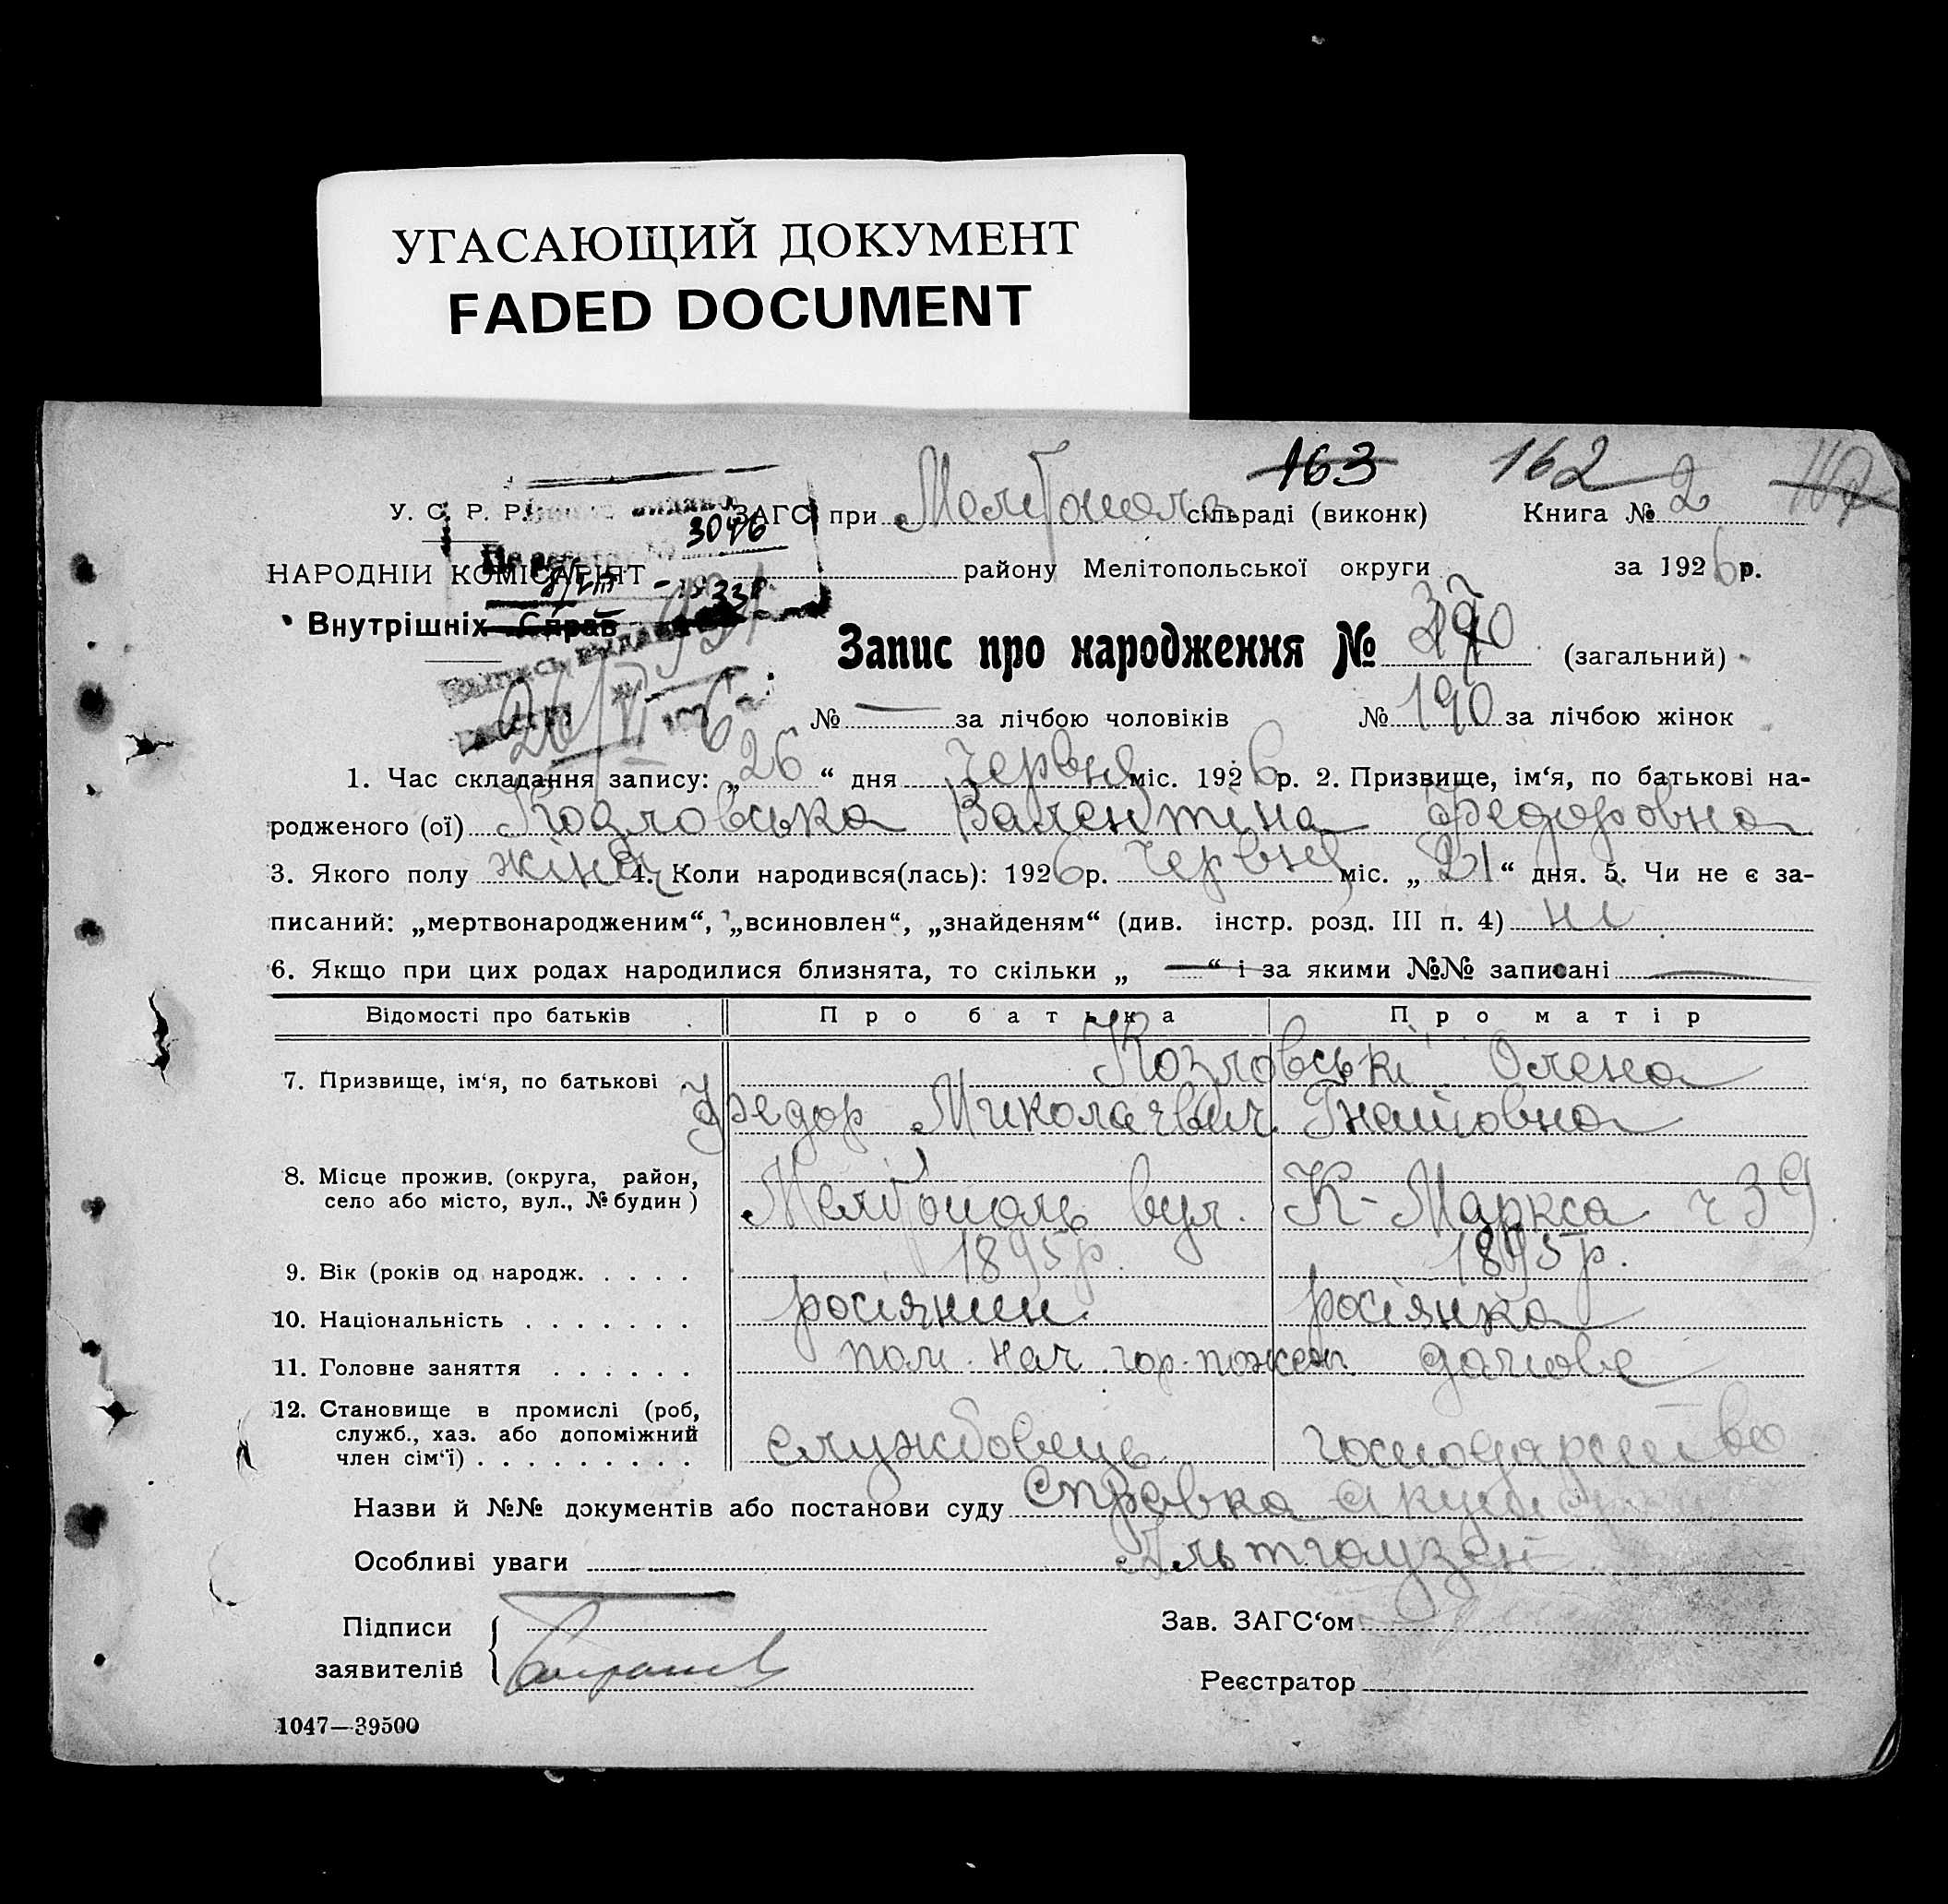 УГАСАЮЩИЙ ДОКУМЕНТ
FADED DOCUMENT
163 162
У. С. Р. Р. ЗАГС при Мелітополь сільраді (виконк) Книга № 2
3046
НАРОДНІИ КОМІСАРІЯТ району Мелітопольської округи за 1926 р.
Внутрішніх Справ
Запис про народження № (загальний)
26/VI 6
№ — за лічбою чоловіків № 190 за лічбою жінок
1. Час складання запису: „26“ дня Червня міс. 1926 р. 2. Призвище, ім‘я, по батькові на-
родженого (ої) Козловська Валентіна Федоровна
3. Якого полу жіноч 4. Коли народився(лась): 1926 р. Червня міс. „21“ дня. 5. Чи не є за-
писаний: „мертвонародженим“, „всиновлен“, „знайденям“ (див. інстр. розд. III п. 4) ні
6. Якщо при цих родах народилися близнята, то скільки „ — “ і за якими №№ записані —
Відомості про батьків Про батька Про матір
7. Призвище, ім‘я, по батькові Козловські Олена
Федор Миколаєвич Гнатовна
8. Місце прожив. (округа, район,
село або місто, вул., № будин) Мелітополь вул. К-Маркса ч 39
9. Вік (років од народж. . . . . 1895 р. 1895 р.
10. Національність . . . . . . . росіянин. росіянка
11. Головне заняття . . . . . . пом. нач. гор. пожеж. домове
12. Становище в промислі (роб,
служб., хаз. або допоміжний
член сім‘ї) . . . . . . . . . службовець господарство
Назви й №№ документів або постанови суду Справка акушерки
Особливі уваги Альтгаузен
Підписи
заявителів
Зав. ЗАГС‘ом
Реєстратор
1047—39500